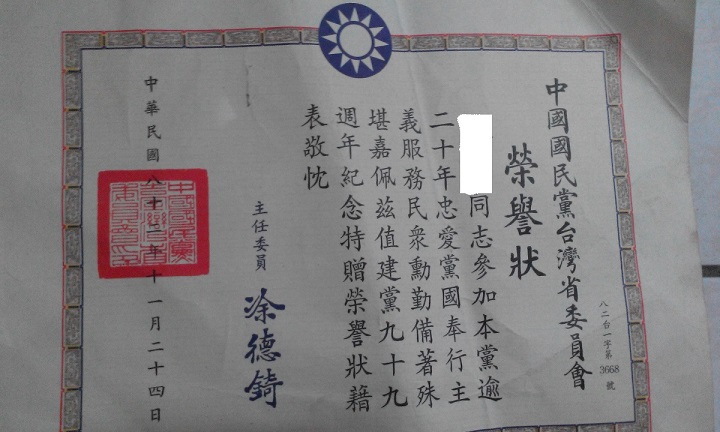 中國國民黨台灣省委員會
八二台一字第3668號
榮譽狀
同志參加本黨逾
二十年忠愛黨國奉行主
義服務民衆勳勤備著殊
堪嘉佩茲值建黨九十九
週年紀念特贈榮譽狀藉
表敬忱
主任委員 涂德錡
中華民國八十二年十一月二十四日